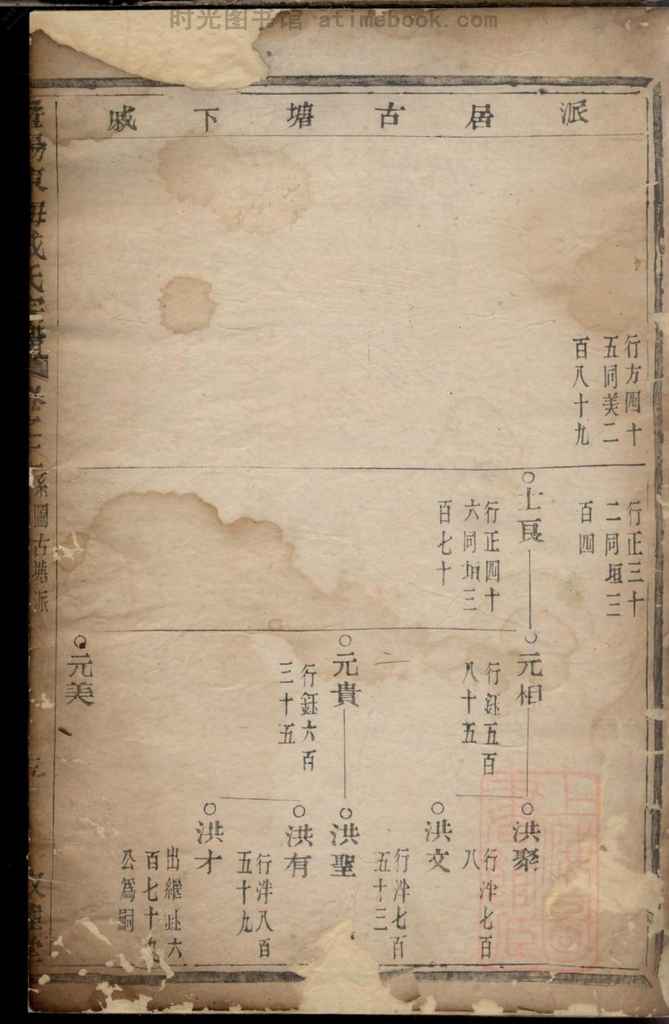 时光图书馆 atimebook.com
派居古塘下戚
行方四十
五同美二
百八十九
行正三十
二同垣三
百四
士良
行正四十
六同垣三
百七十
元相
行鈺五百
八十五
元貴
行鈺六百
三十五
元美
洪聚
行泮七百
八
洪文
行泮七百
五十三
洪聖
洪有
行泮八百
五十九
洪才
出繼鈺六
百七十九
公爲嗣
氏
卷
系圖古塘派